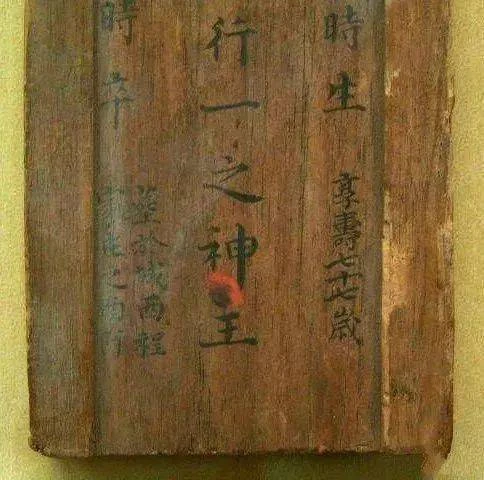 時生 享壽七十七歲
行一之神主
時卒
葬於城西程
之